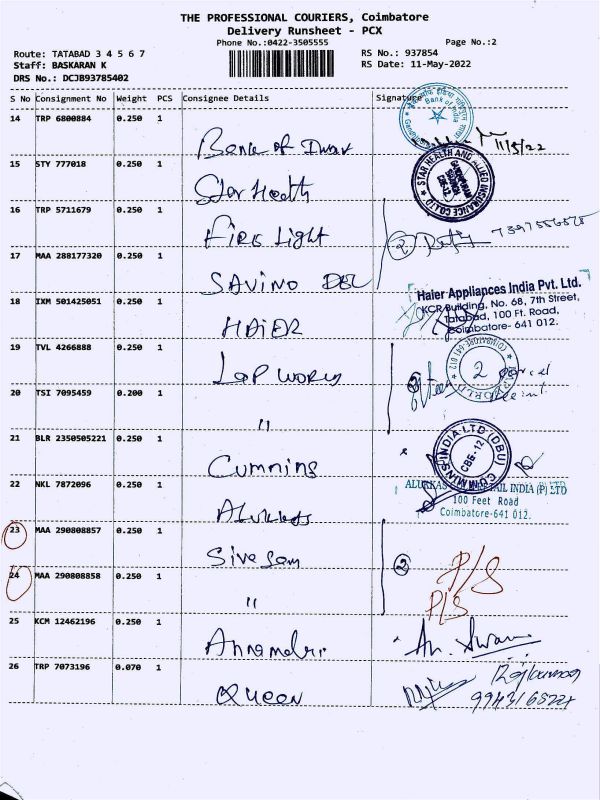 THE PROFESSIONAL COURIERS, Coimbatore
Delivery Runsheet - PCX
Phone No.:0422-3505555
Page No.:2
Route: TATABAD 3 4 5 6 7
RS No.: 937854
Staff: BASKARAN K
RS Date: 11-May-2022
DRS No.: DCJB93785402
S No Consignment No Weight PCS Consignee Details Signature
14 TRP 6800884 0.250 1
Bank of India
11/5/22
15 STY 777018 0.250 1
Star Health
STAR HEALTH AND ALLIED INSURANCE CO LTD
16 TRP 5711679 0.250 1
Fire Light
2
17 MAA 288177320 0.250 1
SAVINO DEL
18 IXM 501425051 0.250 1
HAIER
Haier Appliances India Pvt. Ltd.
KCR Building, No. 68, 7th Street,
Tatabad, 100 Ft. Road,
Coimbatore- 641 012.
19 TVL 4266888 0.250 1
Lap World
2
20 TSI 7095459 0.200 1
"
21 BLR 2350505221 0.250 1
Cummins
CUMMINS INDIA LTD (DBU)
CBE-12
22 NKL 7872096 0.250 1
Alukkas
INDIA (P) LTD
100 Feet Road
Coimbatore-641 012.
23 MAA 290808857 0.250 1
Siva Sam
2
P/S
24 MAA 290808858 0.250 1
"
P/S
25 KCM 12462196 0.250 1
26 TRP 7073196 0.070 1
Queen